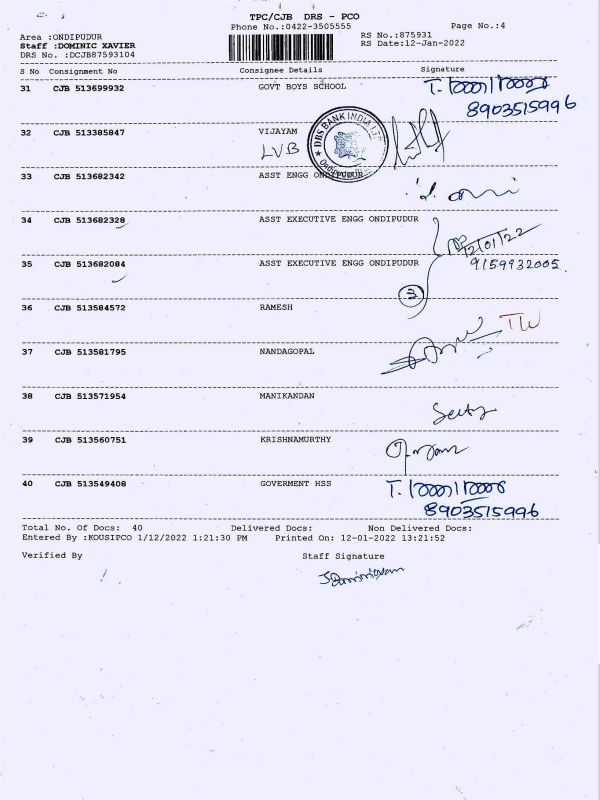 TPC/CJB DRS - PCO
Phone No.:0422-3505555
Page No.:4
Area :ONDIPUDUR
RS No.:875931
Staff :DOMINIC XAVIER
RS Date:12-Jan-2022
DRS No. :DCJB87593104
S No Consignment No Consignee Details Signature
31 CJB 513699932 GOVT BOYS SCHOOL
8903515996
32 CJB 513385847 VIJAYAM
LVB
DBS BANK INDIA LTD
ONDIPUDUR
33 CJB 513682342 ASST ENGG ONDIPUDUR
34 CJB 513682328 ASST EXECUTIVE ENGG ONDIPUDUR
12/01/22
35 CJB 513682084 ASST EXECUTIVE ENGG ONDIPUDUR
9159932005.
3
36 CJB 513584572 RAMESH
TW
37 CJB 513581795 NANDAGOPAL
38 CJB 513571954 MANIKANDAN
39 CJB 513560751 KRISHNAMURTHY
40 CJB 513549408 GOVERMENT HSS
8903515996
Total No. Of Docs: 40 Delivered Docs: Non Delivered Docs:
Entered By :KOUSIPCO 1/12/2022 1:21:30 PM Printed On: 12-01-2022 13:21:52
Verified By Staff Signature